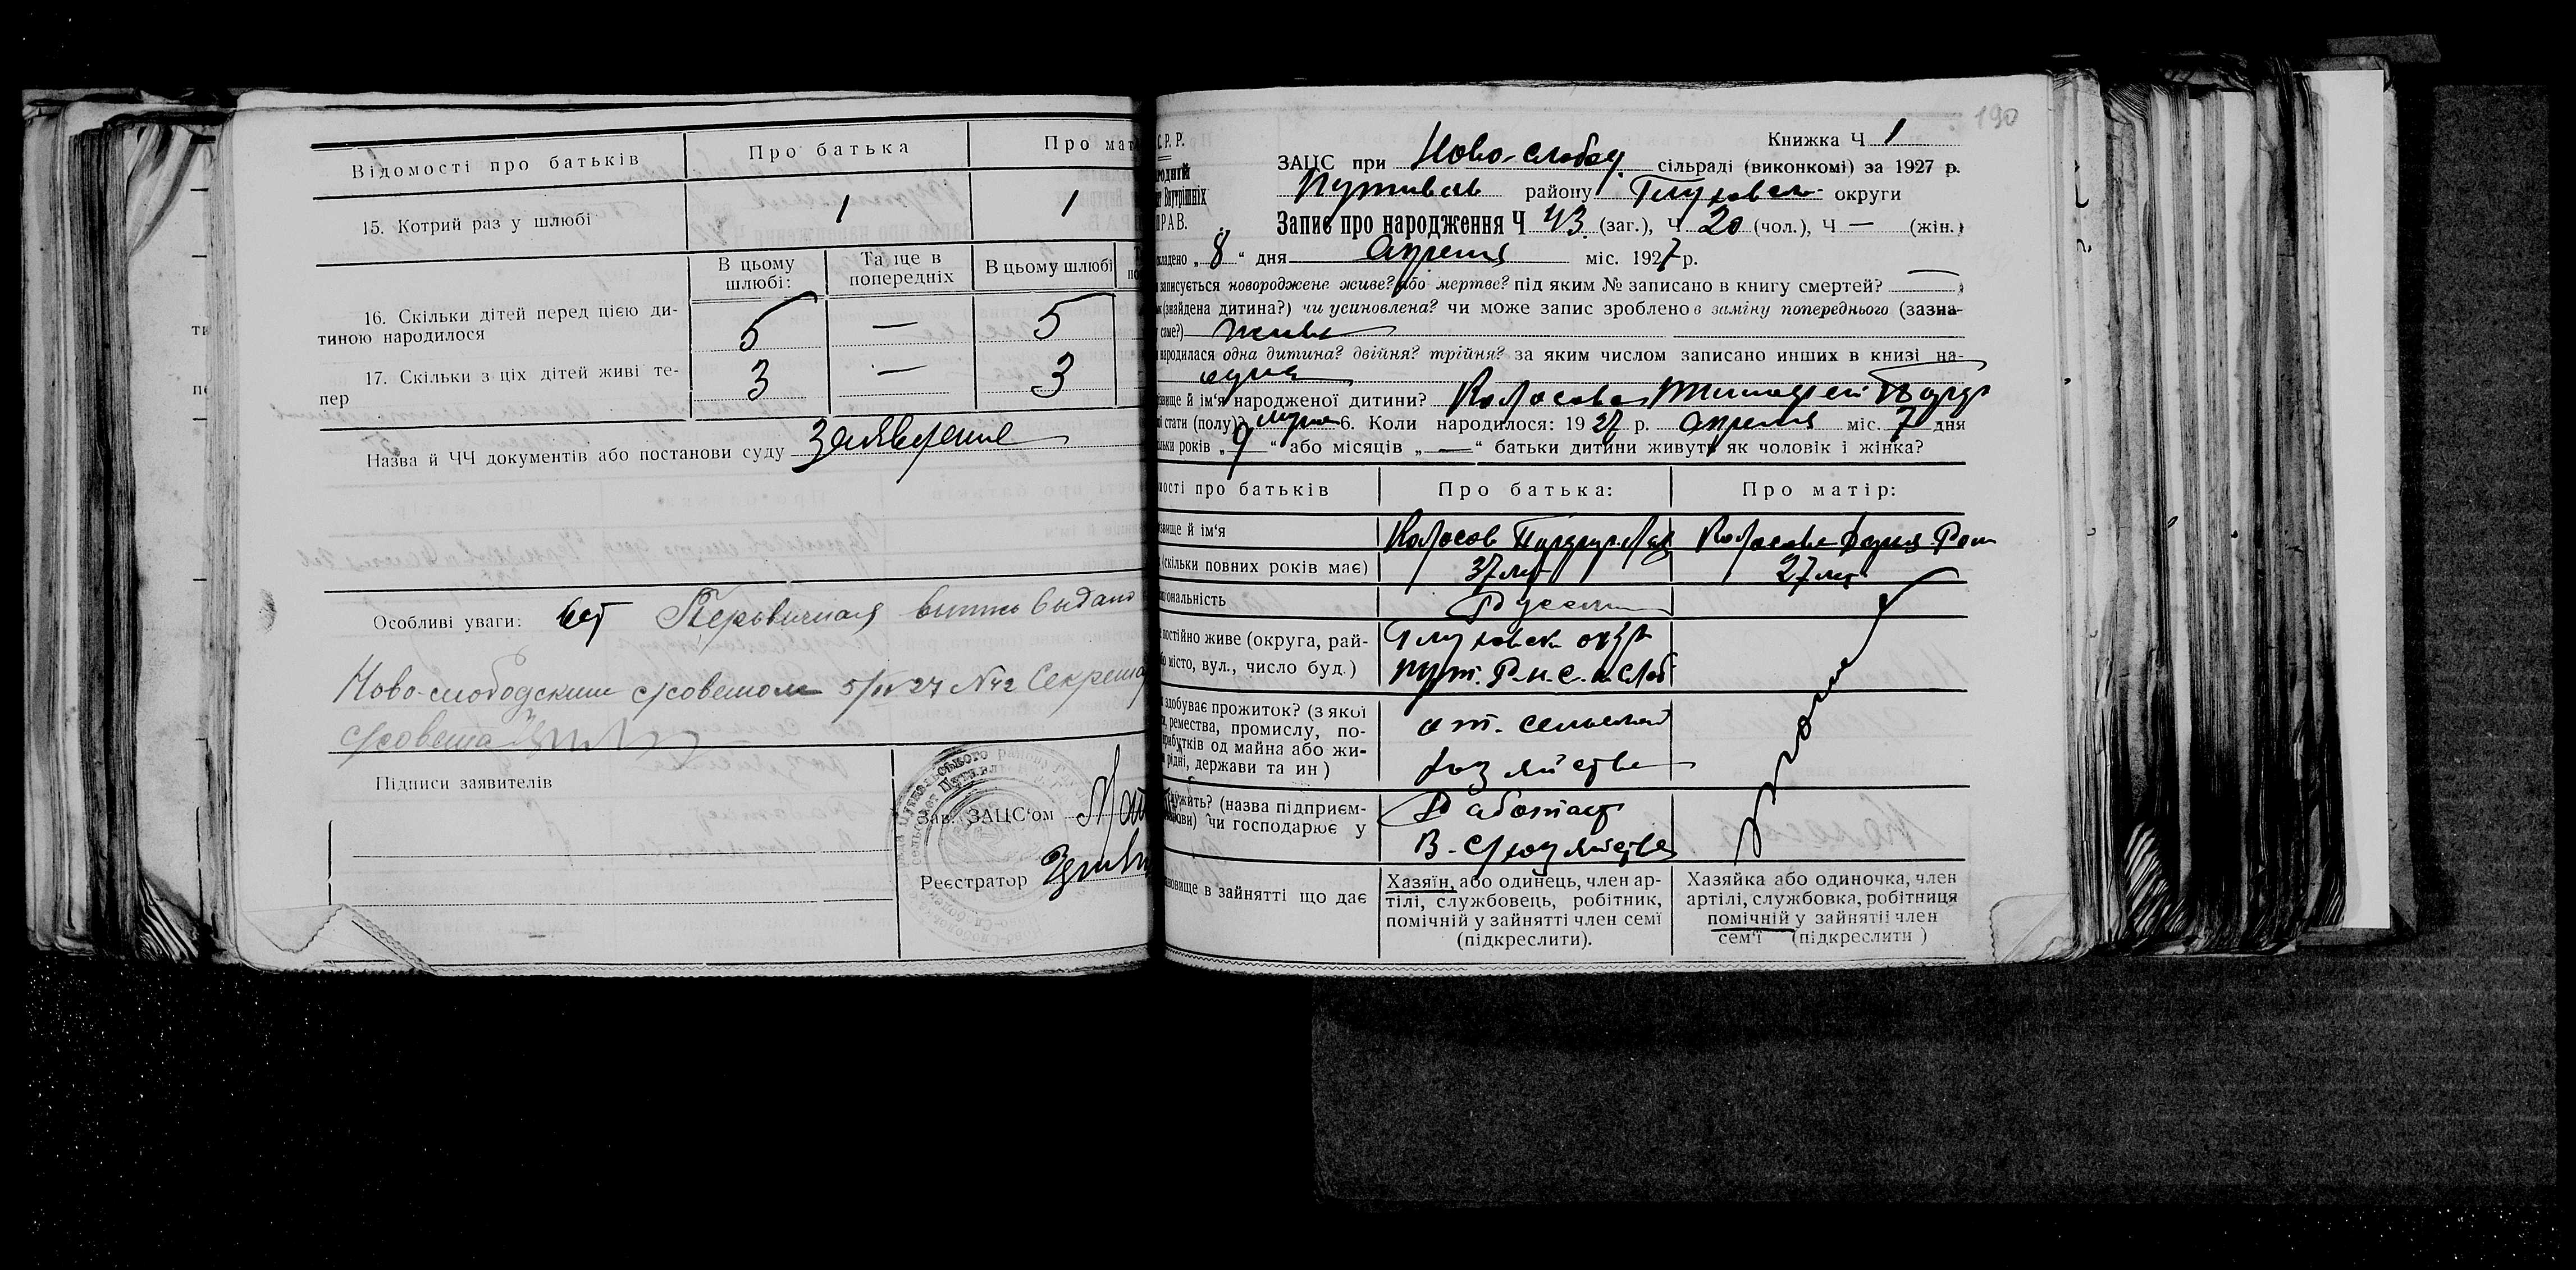 Відомості про батьків
Про батька
Про мат
15. Котрий раз у шлюбі
1
1
В цьому шлюбі:
Та ще в попередніх
В цьому шлюбі
16. Скільки дітей перед цією ди-
тиною народилося
5
—
5
17. Скільки з ціх дітей живі те-
пер
3
—
3
Назва й ЧЧ документів або постанови суду заявление
Особливі уваги: нет Первичная выпись выдано
Ново-слободским с/советом 5/IV 27 №42 Секрета
с/совета
Підписи заявителів
Зав. ЗАЦС'ом
Реєстратор
190
Книжка Ч 1
С.Р.Р.
ЗАЦС при Ново-слобод. сільраді (виконкомі) за 1927 р.
Внутрішніх
Путивль району Глуховск округи
ПРАВ.
Запис про народження Ч 43 (заг.), Ч 20 (чол.), Ч — (жін.)
кладено „8“ дня Апреля міс. 1927 р.
записується новороджене живе? або мертве? під яким № записано в книгу смертей? —
(знайдена дитина?) чи усиновлена? чи може запис зроблено в заміну попереднього (зазна-
саме?) живе
народилася одна дитина? двійня? трійня? за яким числом записано инших в книзі на-
одна
звище й ім'я народженої дитини? Колосов Тимофей
стати (полу)? муж 6. Коли народилося: 1927 р. апреля міс. 7 дня
ільки років „9“ або місяців „—“ батьки дитини живуть як чоловік і жінка?
мості про батьків
Про батька:
Про матір:
звище й ім'я
Колосов
Колосова
(скільки повних років має)
37 лет
27 лет
ціональність
Русский
постійно живе (округа, рай-
о місто, вул., число буд.)
Глуховск окр
Пут. Р-н. с. н. слоб
здобуває прожиток? (з якої
ремества, промислу, по-
рибутків од майна або жи-
рідні, держави та ин)
от. сельского
хозяйства
служить? (назва підприєм-
нови) чи господарює у
Работает
в с/хозяйстве
ановище в зайнятті що дає
Хазяїн, або одинець, член ар-
тілі, службовець, робітник,
помічній у зайнятті член семї
(підкреслити).
Хазяйка або одиночка, член
артілі, службовка, робітниця
помічній у зайнятті член
сем'ї (підкреслити)